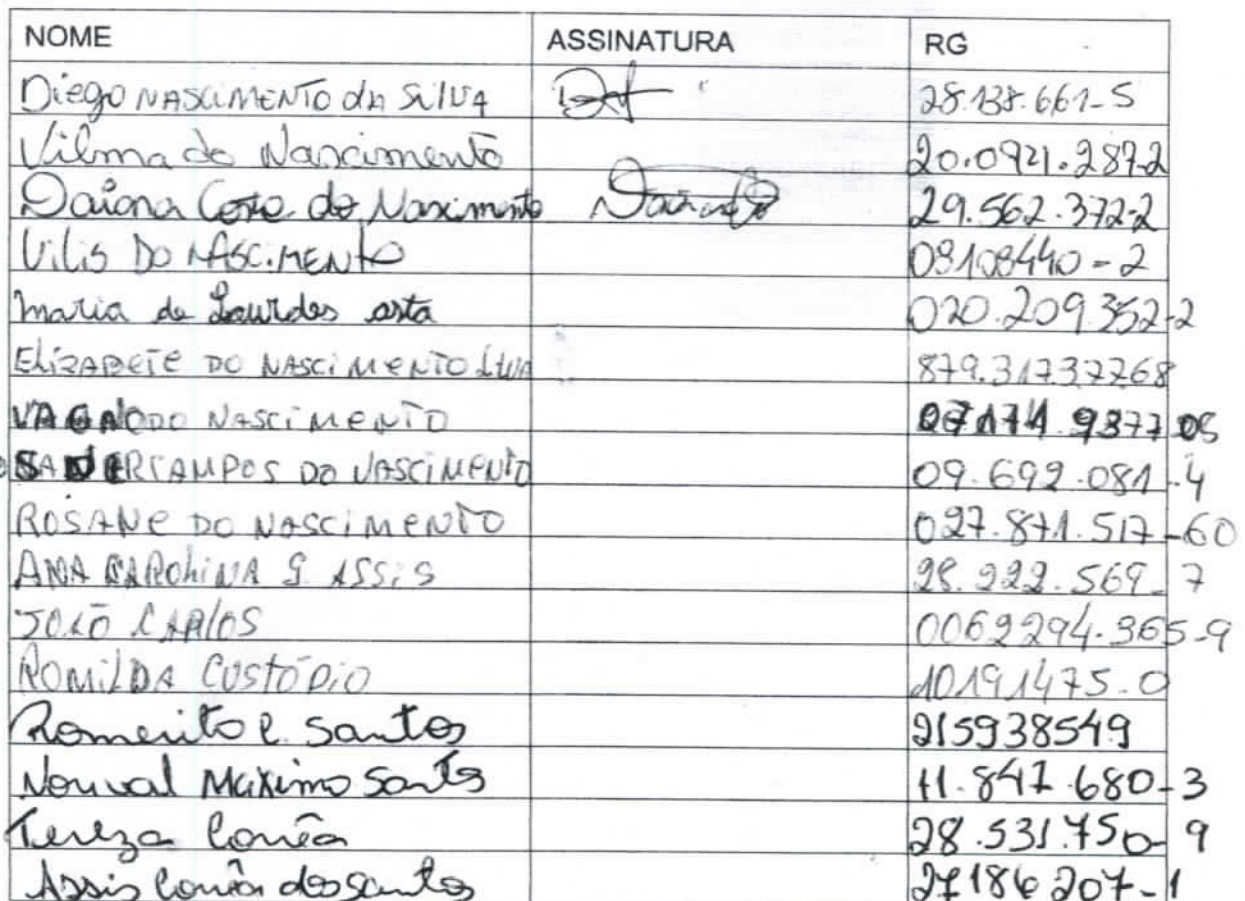 NOME ASSINATURA RG
Diego NASCIMENTO da SILVA 28.138.661-5
Vilma do Nascimento 20.0921.287-2
Daiana do Nascimento 29.562.372-2
Vilis DO NASCIMENTO 08108440-2
maria de Lourdes 020.209.352-2
ELIZABETE DO NASCIMENTO 879.31737768
NASCIMENTO
CAMPOS DO NASCIMENTO 09.692.081-4
ROSANE DO NASCIMENTO 027.871.517-60
ANA CAROLINA S. ASSIS 28.222.569-7
JOÃO CARLOS 0062294.365-9
ROMILDA CUSTÓDIO 10191475-0
Romerito C. Santos 215938549
Nourval Maximo Santos 11.847.680-3
Tereza Corrêa 28.531.750-9
Assis Corrêa dos Santos 27186207-1